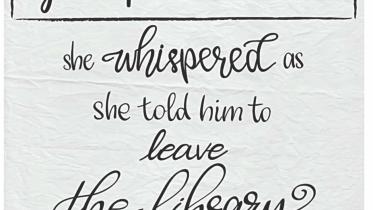 she whispered as
she told him to
leave
the library?